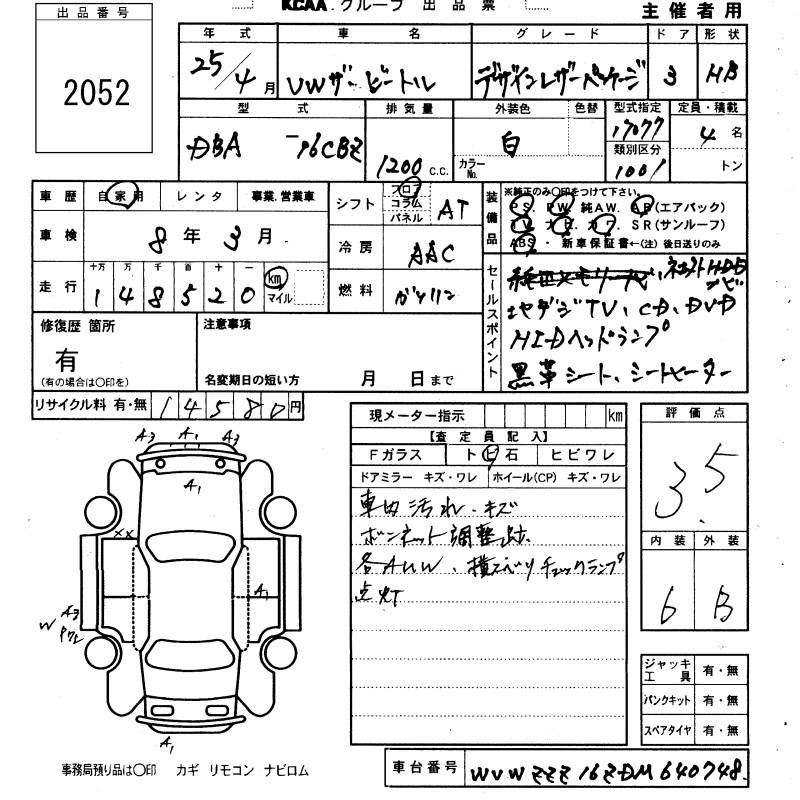 出品番号
2052
KCAA.グループ 出品票
主催者用
年式 車名 グレード ドア 形状
25/4月 VWザ・ビートル デザインレザーパッケージ 3 HB
型式 排気量 外装色 色替 型式指定 定員・積載
DBA -16CBZ 1200c.c. 白 カラーNo. 17077 4名
類別区分
1001 トン
車歴 自家用 レンタ 事業.営業車
車検 8年3月
走行 十万 万 千 百 十 一
148520 km マイル
シフト フロア コラム パネル AT
冷房 AAC
燃料 ガソリン
装備品 ※純正のみ〇印をつけて下さい。
PS. PW. 純AW. AB(エアバック)
TV. ナビ. カワ. SR(サンルーフ)
ABS・新車保証書←(注)後日送りのみ
セールスポイント
地デジTV、CD、DVD
HIDヘッドランプ
黒革シート、シートヒーター
修復歴 箇所
有
(有の場合は〇印を)
注意事項
名変期日の短い方 月 日まで
リサイクル料 有・無 14580円
現メーター指示 km
【査定員記入】
Fガラス トビ石 ヒビワレ
ドアミラー キズ・ワレ ホイール(CP) キズ・ワレ
車内汚れ・キズ
ボンネット調整跡
各AUW、横スベリチェックランプ
点灯
評価点
3.5
内装 外装
6 B
A3 A1 A3
A1
XX
A1
A3
W
A1
ジャッキ工具 有・無
パンクキット 有・無
スペアタイヤ 有・無
事務局預り品は〇印 カギ リモコン ナビロム
車台番号 WVWZZZ16ZDM640748.